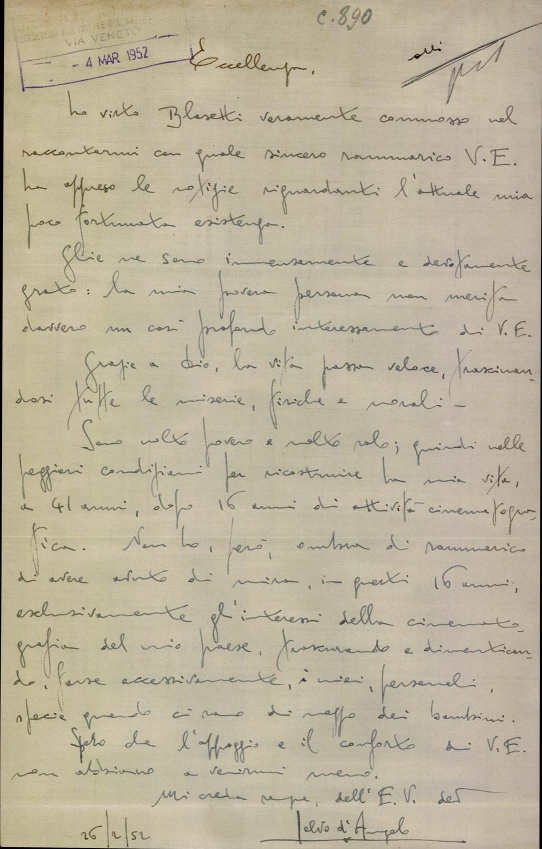 c.890
VIA VENETO
- 4 MAR 1952
Eccellenza,
atti
ho visto Blasetti veramente commosso nel
raccontarmi con quale sincero rammarico V.E.
ha appreso le notizie riguardanti l'attuale mia
poco fortunata esistenza.
Glie ne sono immensamente e devotamente
grato: la mia povera persona non merita
davvero un così profondo interessamento di V.E.
Grazie a Dio, la vita passa veloce, trascinan-
dosi tutte le miserie, fisiche e morali -
Sono molto povero e molto solo; quindi nelle
peggiori condizioni per ricostruire la mia vita,
a 41 anni, dopo 16 anni di attività cinematogra-
fica. Non ho, però, ombra di rammarico
di avere avuto di mira, in questi 16 anni,
esclusivamente gl'interessi della cinemato-
grafia del mio paese, trascurando e dimentican-
do, forse eccessivamente, i miei, personali,
specie quando ci sono di mezzo dei bambini.
Spero che l'appoggio e il conforto di V.E.
non abbiano a venirmi meno.
Mi creda sempre, dell'E.V. dev
Salvo d'Angelo
26/2/52